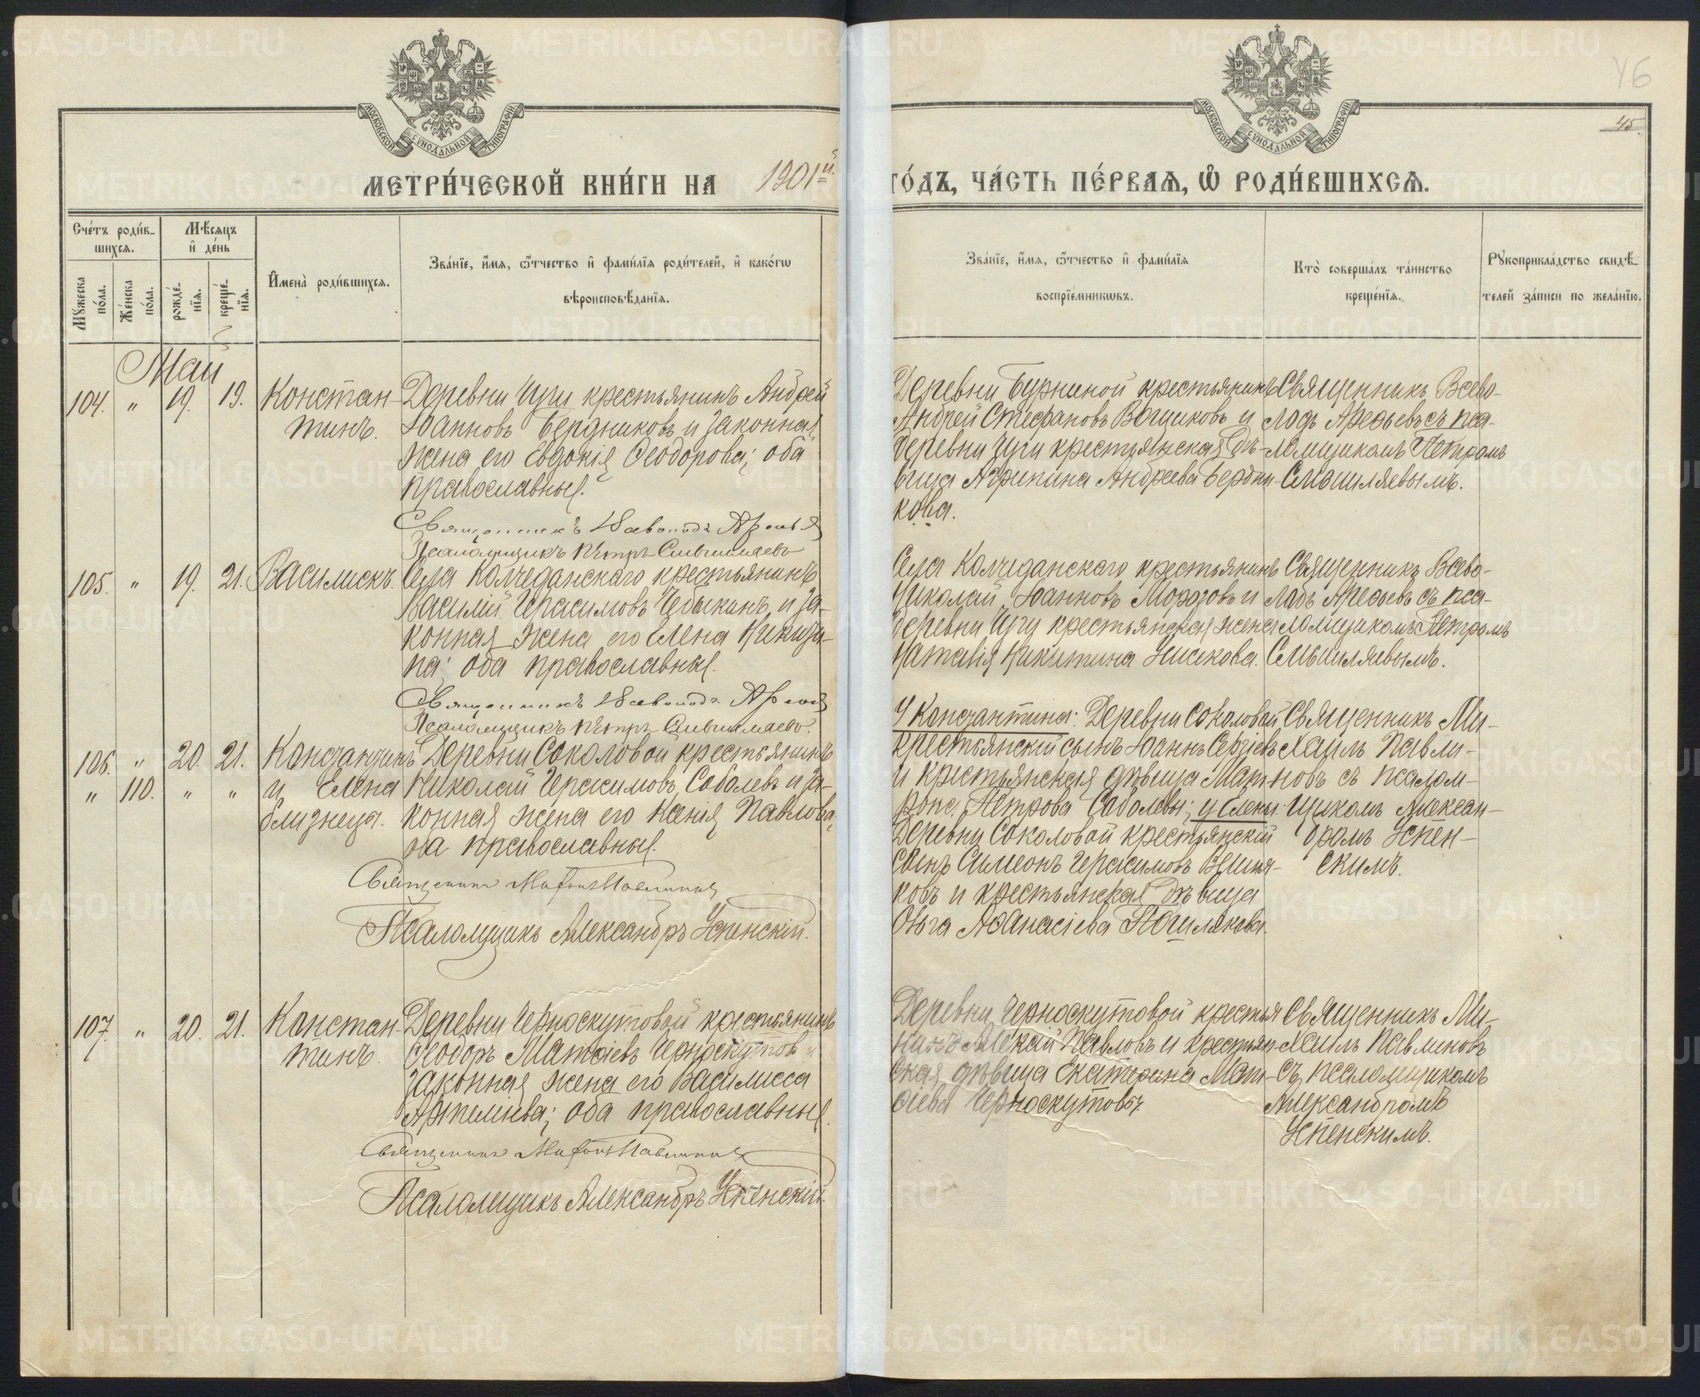 46
45.
МЕТРИ́ЧЕСКОЙ КНИ́ГИ НА 1901й.
ГО́ДЪ, ЧА́СТЬ ПЕ́РВАЯ, Ѡ РОДИ́ВШИХСЯ.
Сче́тъ роди́в-
шихся.
Мѣ́сяцъ
и де́нь
Мꙋжеска по́ла.
Же́нска по́ла.
рожде́-
нїя.
креще́-
нїя.
И҆мена̀ роди́вшихся.
Зва́нїе, и҆́мя, ѻ҆́тчество и҆ фами́лїя роди́телей, и҆ како́гѡ
вѣроисповѣ́данїя.
Зва́нїе, и҆́мя, ѻ҆́тчество и҆ фами́лїя
воспрїе́мникѡвъ.
Кто̀ соверша́лъ та́инство
креще́нїя.
Рꙋкоприкла́дство свидѣ́-
телей за́писи по жела́нїю.
Май
104. " 19. 19. Констан-
тинъ.
Деревни Щуги крестьянинъ Андрей
Іоанновъ Бердниковъ и законная
жена его Евдокія Ѳеодорова; оба
православные.
Священникъ Всеволодъ Арефьев
Псаломщикъ Петръ
Деревни Бурниной крестьянинъ
Андрей Стефановъ и
деревни Щуги крестьянская дѣ-
вица Агрипина Андреева Бердни-
кова.
Священникъ Всево-
лодъ Арефьевъ съ пса-
ломщикомъ Петромъ
105. " 19. 21. Василискъ.
Села Колчеданскаго крестьянинъ
Василій Герасимовъ и за-
конная жена его Елена
на; оба православные.
Священникъ Всеволодъ Арефьев
Псаломщикъ Петръ
Села Колчеданскаго крестьянинъ
Николай Іоанновъ Морозовъ и
деревни Щуги крестьянская жена
Наталія Никитина
Священникъ Всево-
лодъ Арефьевъ съ пса-
ломщикомъ Петромъ
106. " 20. 21. Констан́тинъ
" 110. " " и Елена
близнецы.
Деревни Соколовой крестьянинъ
Николай Герасимовъ Соболевъ и за-
конная жена его Ксенія Павлова,
оба православные.
Священник Михаил Павлинов
Псаломщикъ Александръ Успенскій.
У Константина: Деревни Соколовой
крестьянскій сынъ Іоаннъ Сергіевъ
и крестьянская дѣвица Мат-
рона Петрова Соболевы; у Елены:
Деревни Соколовой крестьянскій
сынъ Симеонъ Герасимовъ
ковъ и крестьянская дѣвица
Ольга Аѳанасіева
Священникъ Ми-
хаилъ Павли-
новъ съ псалом-
щикомъ Алексан-
дромъ Успен-
скимъ.
107. " 20. 21. Констан-
тинъ.
Деревни Черноскутовой крестьянинъ
Ѳеодоръ Матѳіевъ Черноскутов и
законная жена его Василисса
Артеміева; оба православные.
Священник Михаил Павлинов
Псаломщикъ Александръ Успенскій
Деревни Черноскутовой крестья-
нинъ Алексій Павловъ и крестьян-
ская дѣвица Екатерина Мат-
ѳіева Черноскутовы
Священникъ Ми-
хаилъ Павлиновъ
съ псаломщикомъ
Александромъ
Успенскимъ.